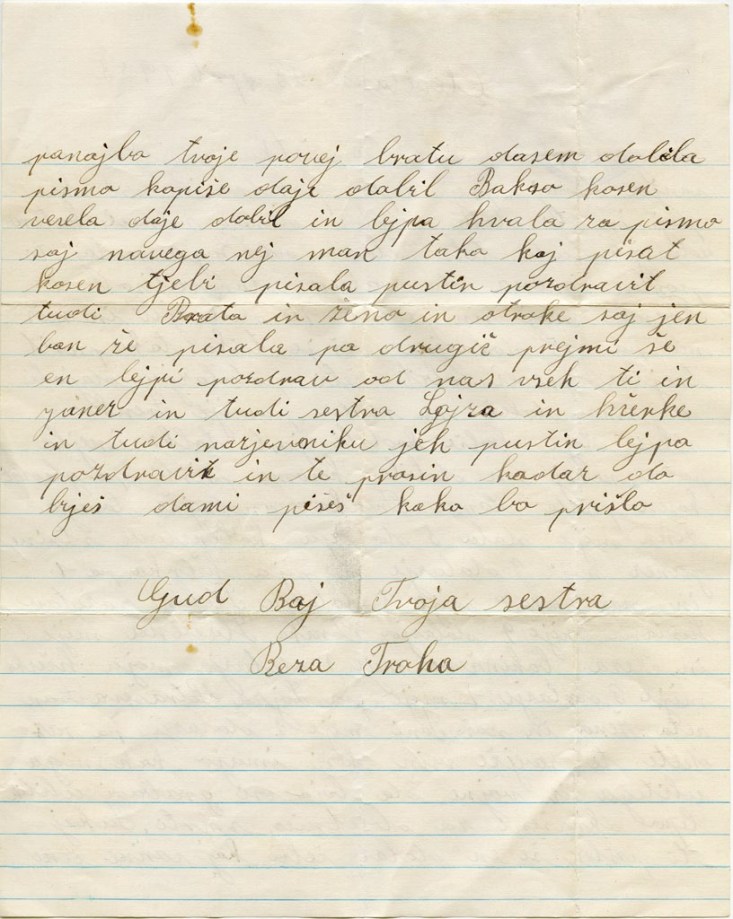 panajbo tvoje povej bratu dasem dobila
pismo kopiše daje dobil Bakso kosen
vesela daje dobil in lejpa hvala za pismo
saj navega nej man tako kaj pisat
kosen tjebi pisala pustin pozdravit
tudi Brata in ženo in otroke saj jen
bon že pisala po drugič prejmi še
en lejpi pozdrav od nas vseh ti in
yanez in tudi sestra Lojza in hčerke
in tudi jeh pustin lejpo
pozdravit in te prosin kadar do
bješ dami pišeš kako bo prišlo
Gud Baj Tvoja sestra
Reza Troha